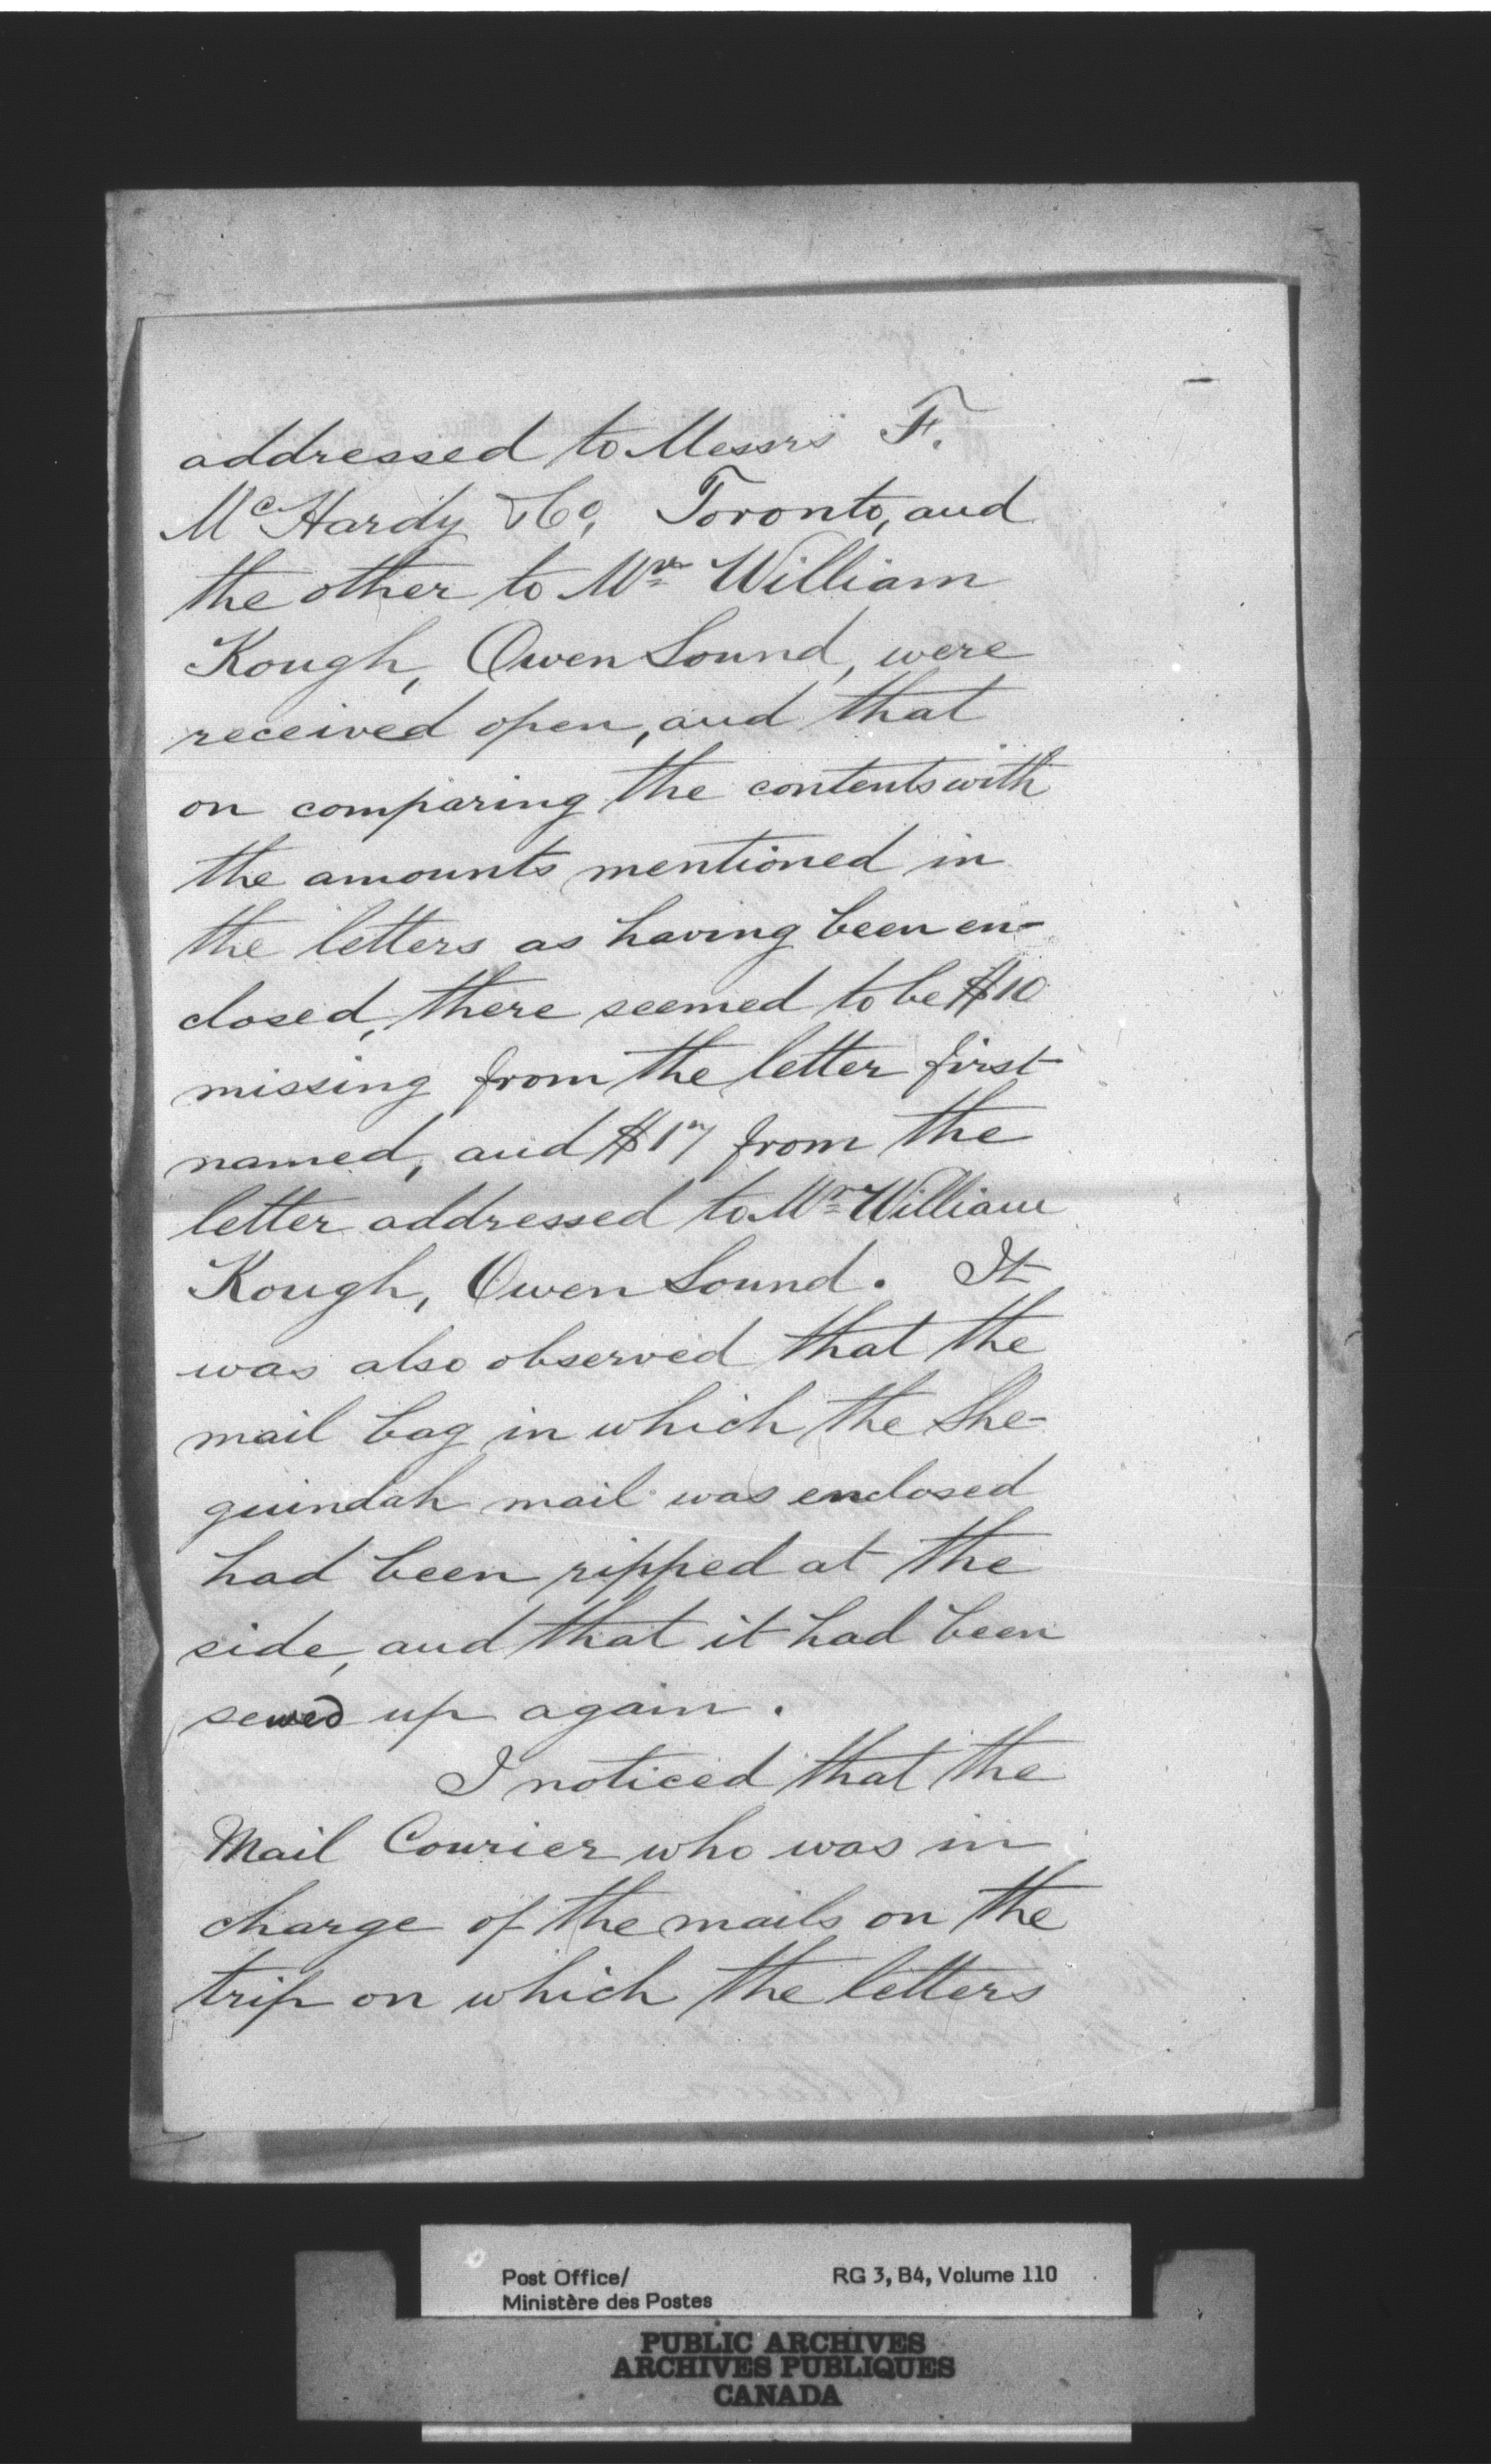 addressed to Messrs F.
McHardy & Co, Toronto, and
the other to Mr William
Kough, Owen Sound, were
received open, and that
on comparing the contents with
the amounts mentioned in
the letters as having been en-
closed, there seemed to be $10
missing from the letter first
named, and $17 from the
letter addressed to Mr William
Kough, Owen Sound. It
was also observed that the
mail bag in which the She-
guindah mail was enclosed
had been ripped at the
side, and that it had been
sewed up again.
I noticed that the
Mail Courier who was in
charge of the mails on the
trip on which the letters
Post Office/ RG 3, B4, Volume 110
Ministère des Postes
PUBLIC ARCHIVES
ARCHIVES PUBLIQUES
CANADA